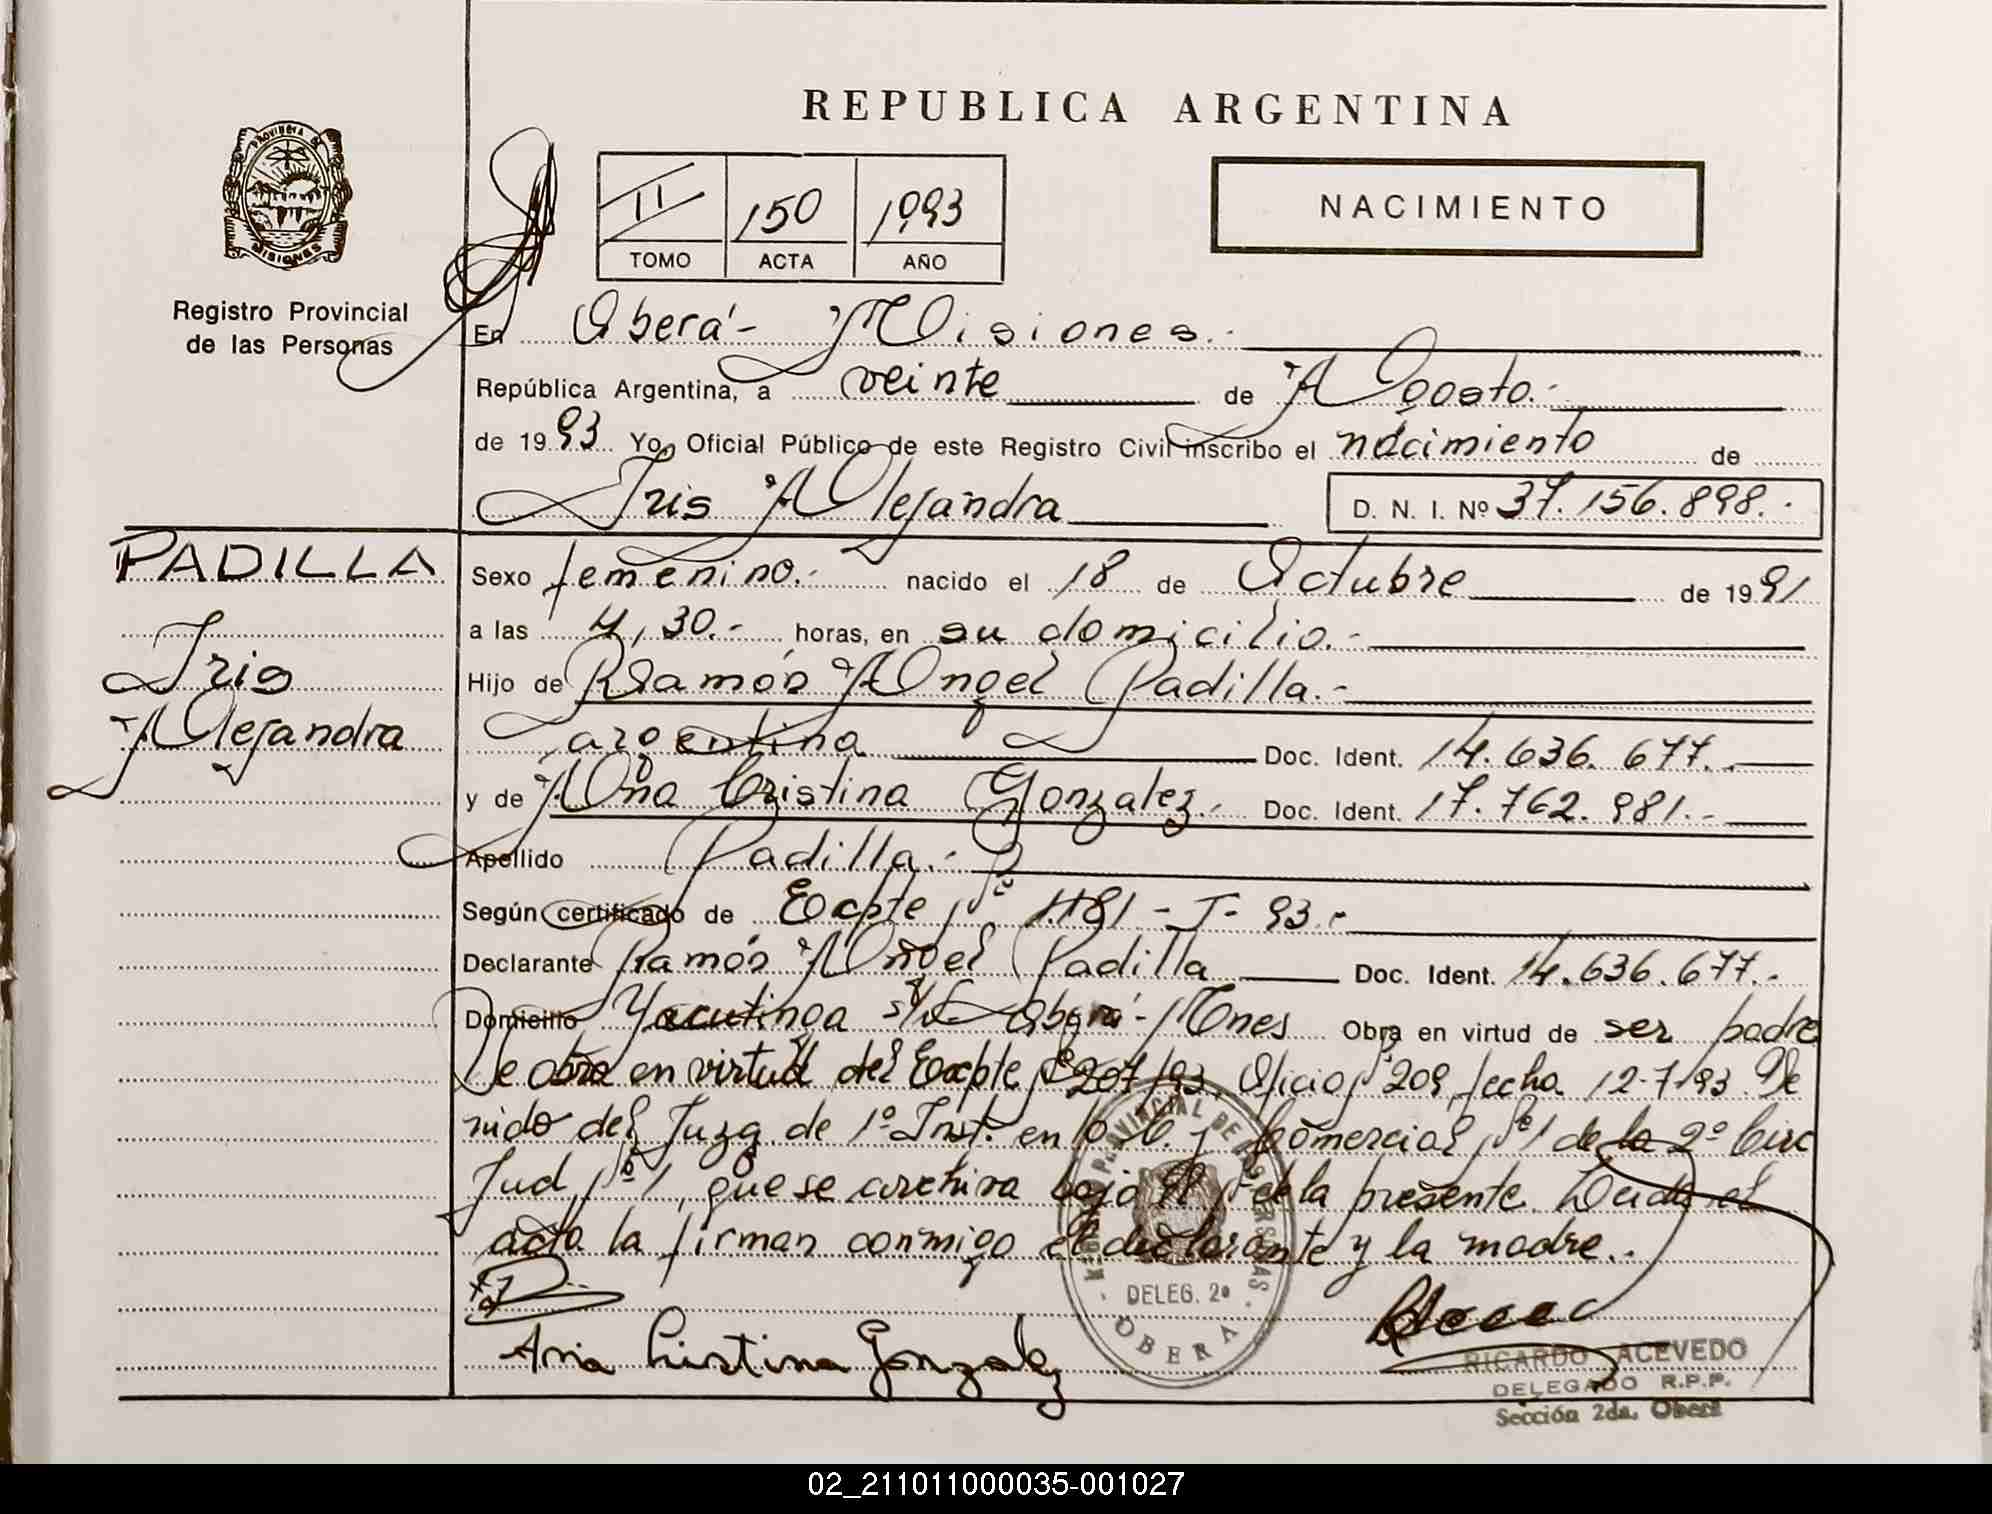 REPUBLICA ARGENTINA
PROVINCIA DE
MISIONES
Registro Provincial
de las Personas
II 150 1993
TOMO ACTA AÑO
NACIMIENTO
En Oberá - Misiones.-
República Argentina, a veinte de Agosto.-
de 1993 Yo, Oficial Público de este Registro Civil inscribo el nacimiento de
Iris Alejandra D. N. I. Nº 37.156.898.-
PADILLA
Iris
Alejandra
Sexo femenino.- nacido el 18 de Octubre de 1991
a las 4,30.- horas, en su domicilio.-
Hijo de Ramón Angel Padilla.-
argentina Doc. Ident. 14.636.677.-
y de Ana Cristina Gonzalez.- Doc. Ident. 17.762.981.-
Apellido Padilla.-
Según certificado de Expte Nº 1181-T-93.-
Declarante Ramón Angel Padilla Doc. Ident. 14.636.677.-
Domicilio Yacutinga s/n Oberá - Mnes Obra en virtud de ser padre
Se obra en virtud del Expte Nº 207/93, Oficio Nº 209 fecha 12-7-93 De
nido del Juzg. de 1º Inst. en lo C. y Comercial Nº 1 de la 2º Circ
Jud Nº 1, que se archiva bajo el Nº de la presente. Leida el
acta la firman conmigo el declarante y la madre.-
Ana Cristina Gonzalez
DELEG. 2º
OBERA
RICARDO ACEVEDO
DELEGADO R.P.P.
Sección 2da. Oberá
02_211011000035-001027